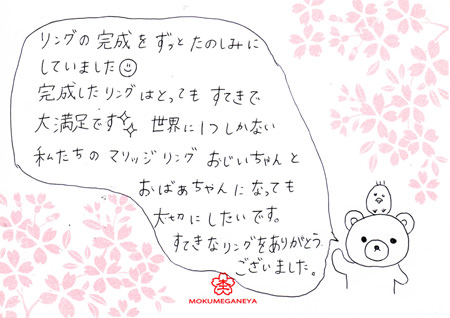 リングの完成をずっとたのしみに
していました
完成したリングはとってもすてきで
大満足です 世界に1つしかない
私たちのマリッジリング おじいちゃんと
おばぁちゃんになっても
大切にしたいです。
すてきなリングをありがとう
ございました。
MOKUMEGANEYA